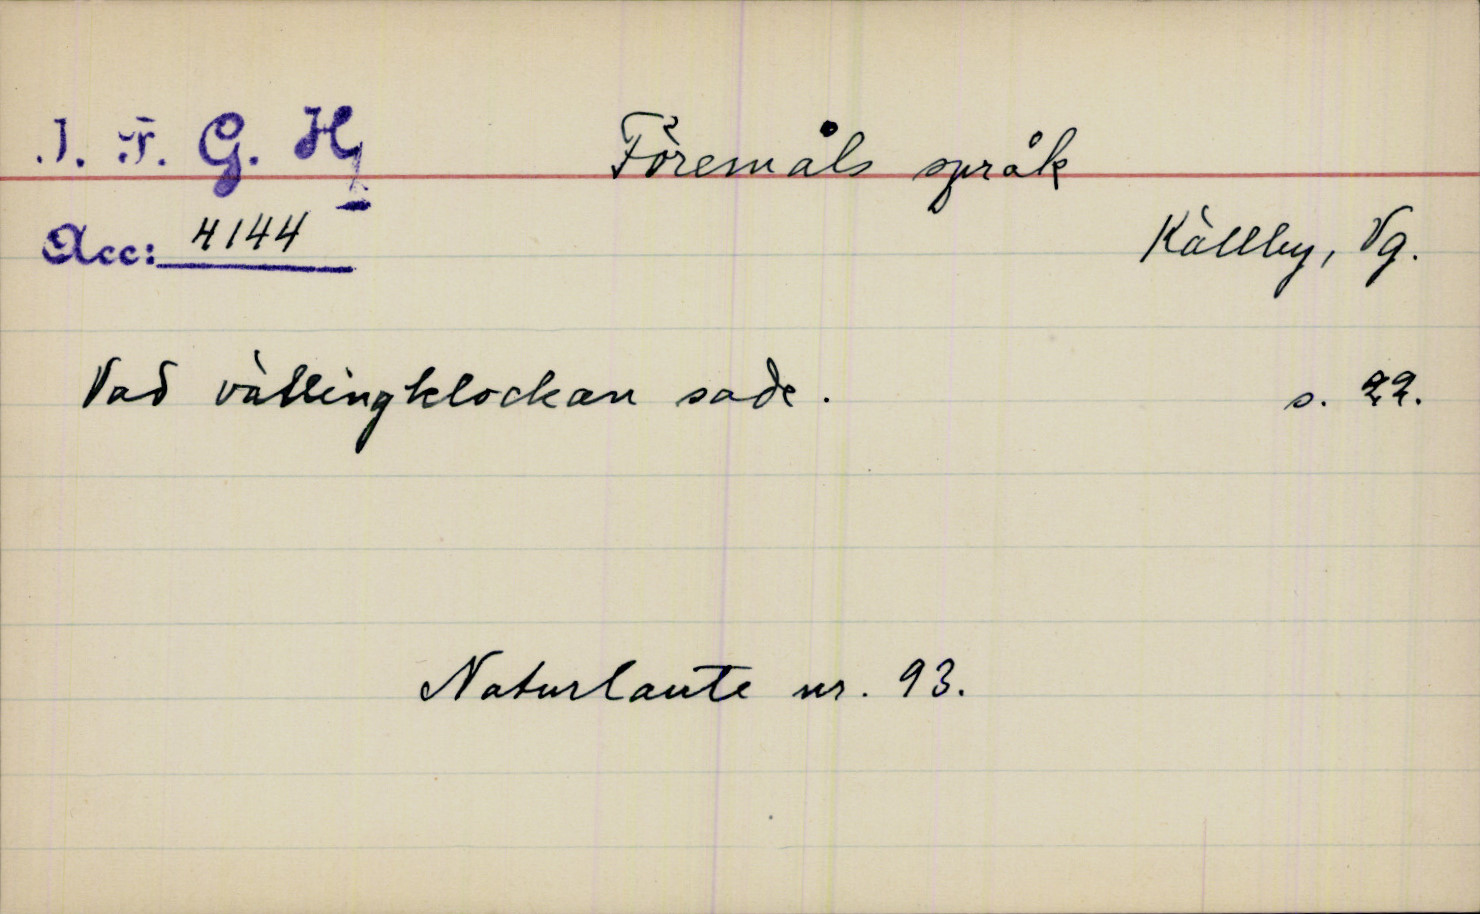 I. F. G. H.
Föremåls språk
Acc: 4144
Källby, Vg.
Vad vällingklockan sade. s. 22.
Naturlaute nr. 93.